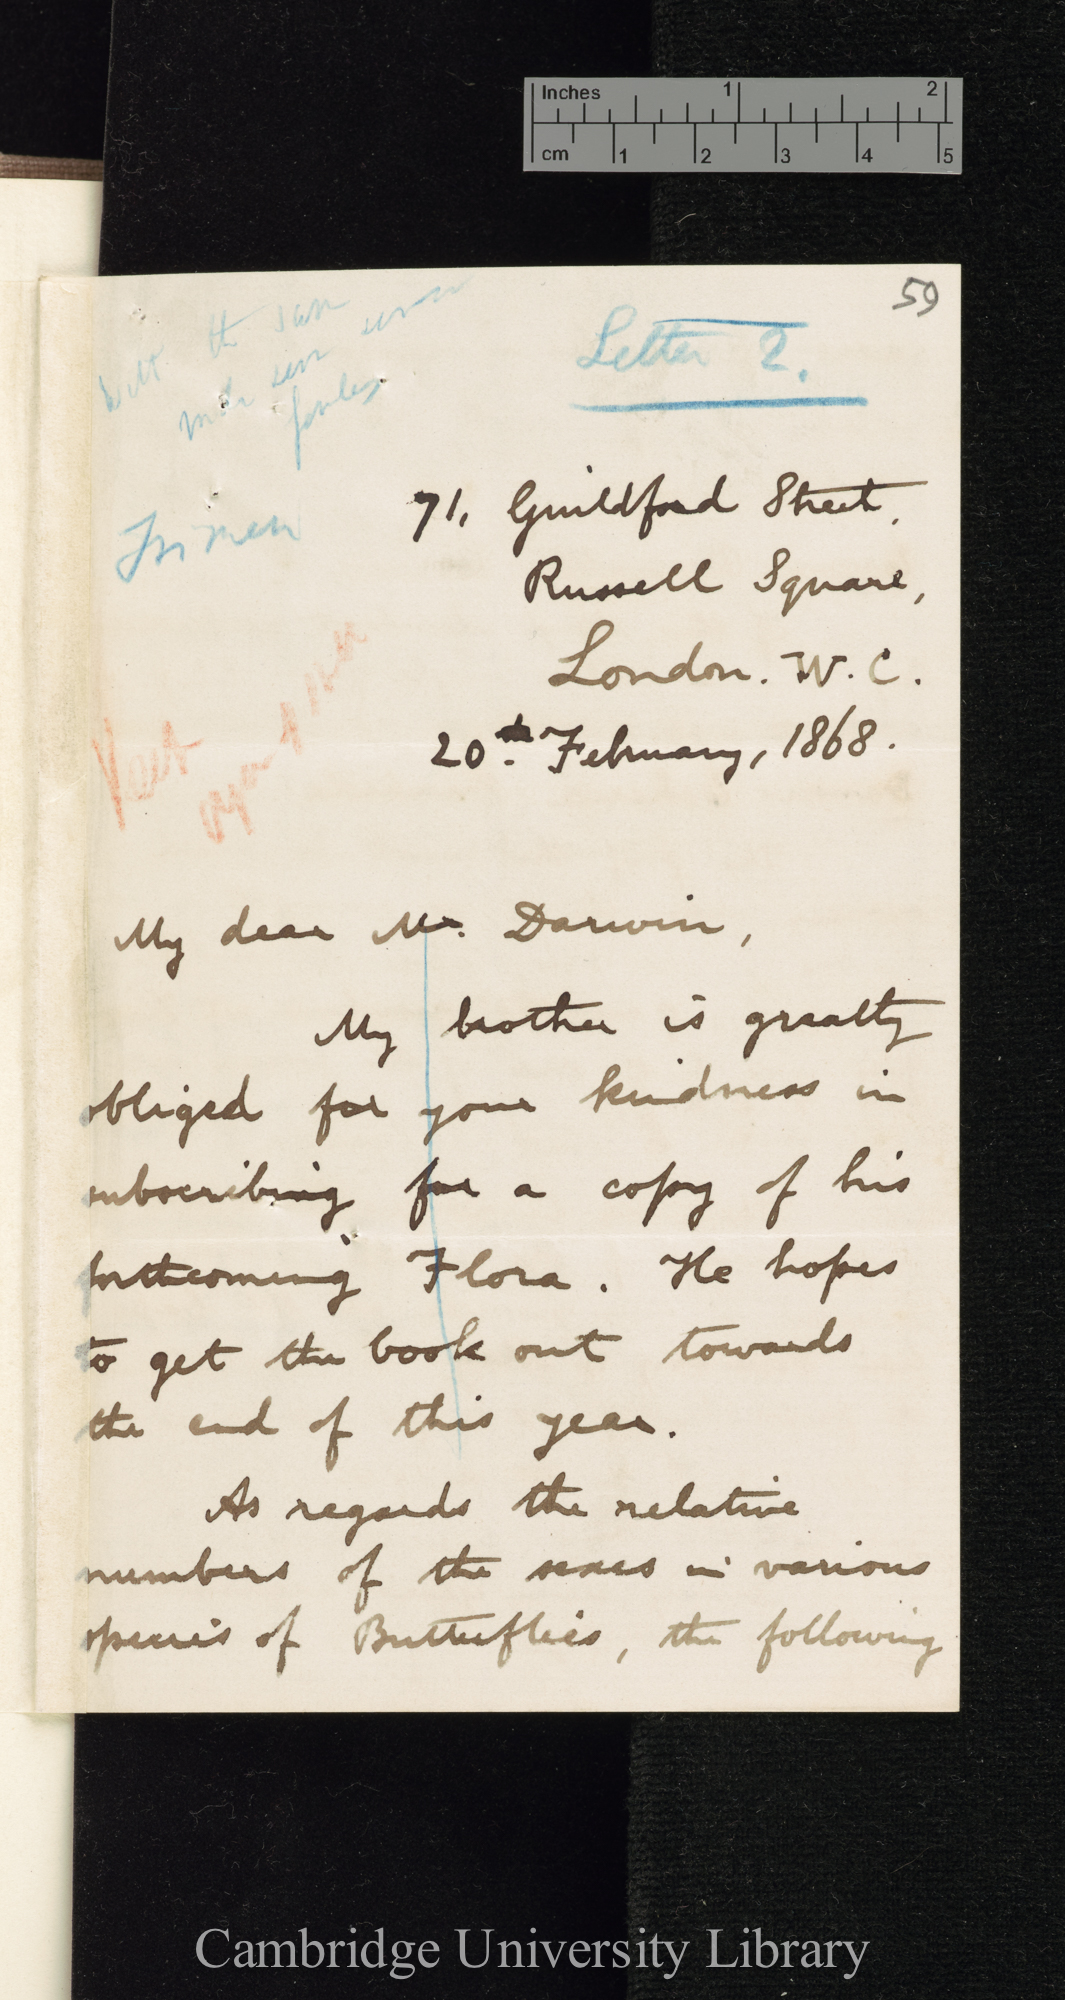 Inches 1 2
cm 1 2 3 4 5
59
Letter 2.
Trimen
71, Guildford Street,
Russell Square,
London. W. C.
20th. February, 1868.
Keep
My dear Mr. Darwin,
My brother is greatly
obliged for your kindness in
subscribing for a copy of his
forthcoming Flora. He hopes
to get the book out towards
the end of this year.
As regards the relative
numbers of the sexes in various
species of Butterflies, the following
Cambridge University Library